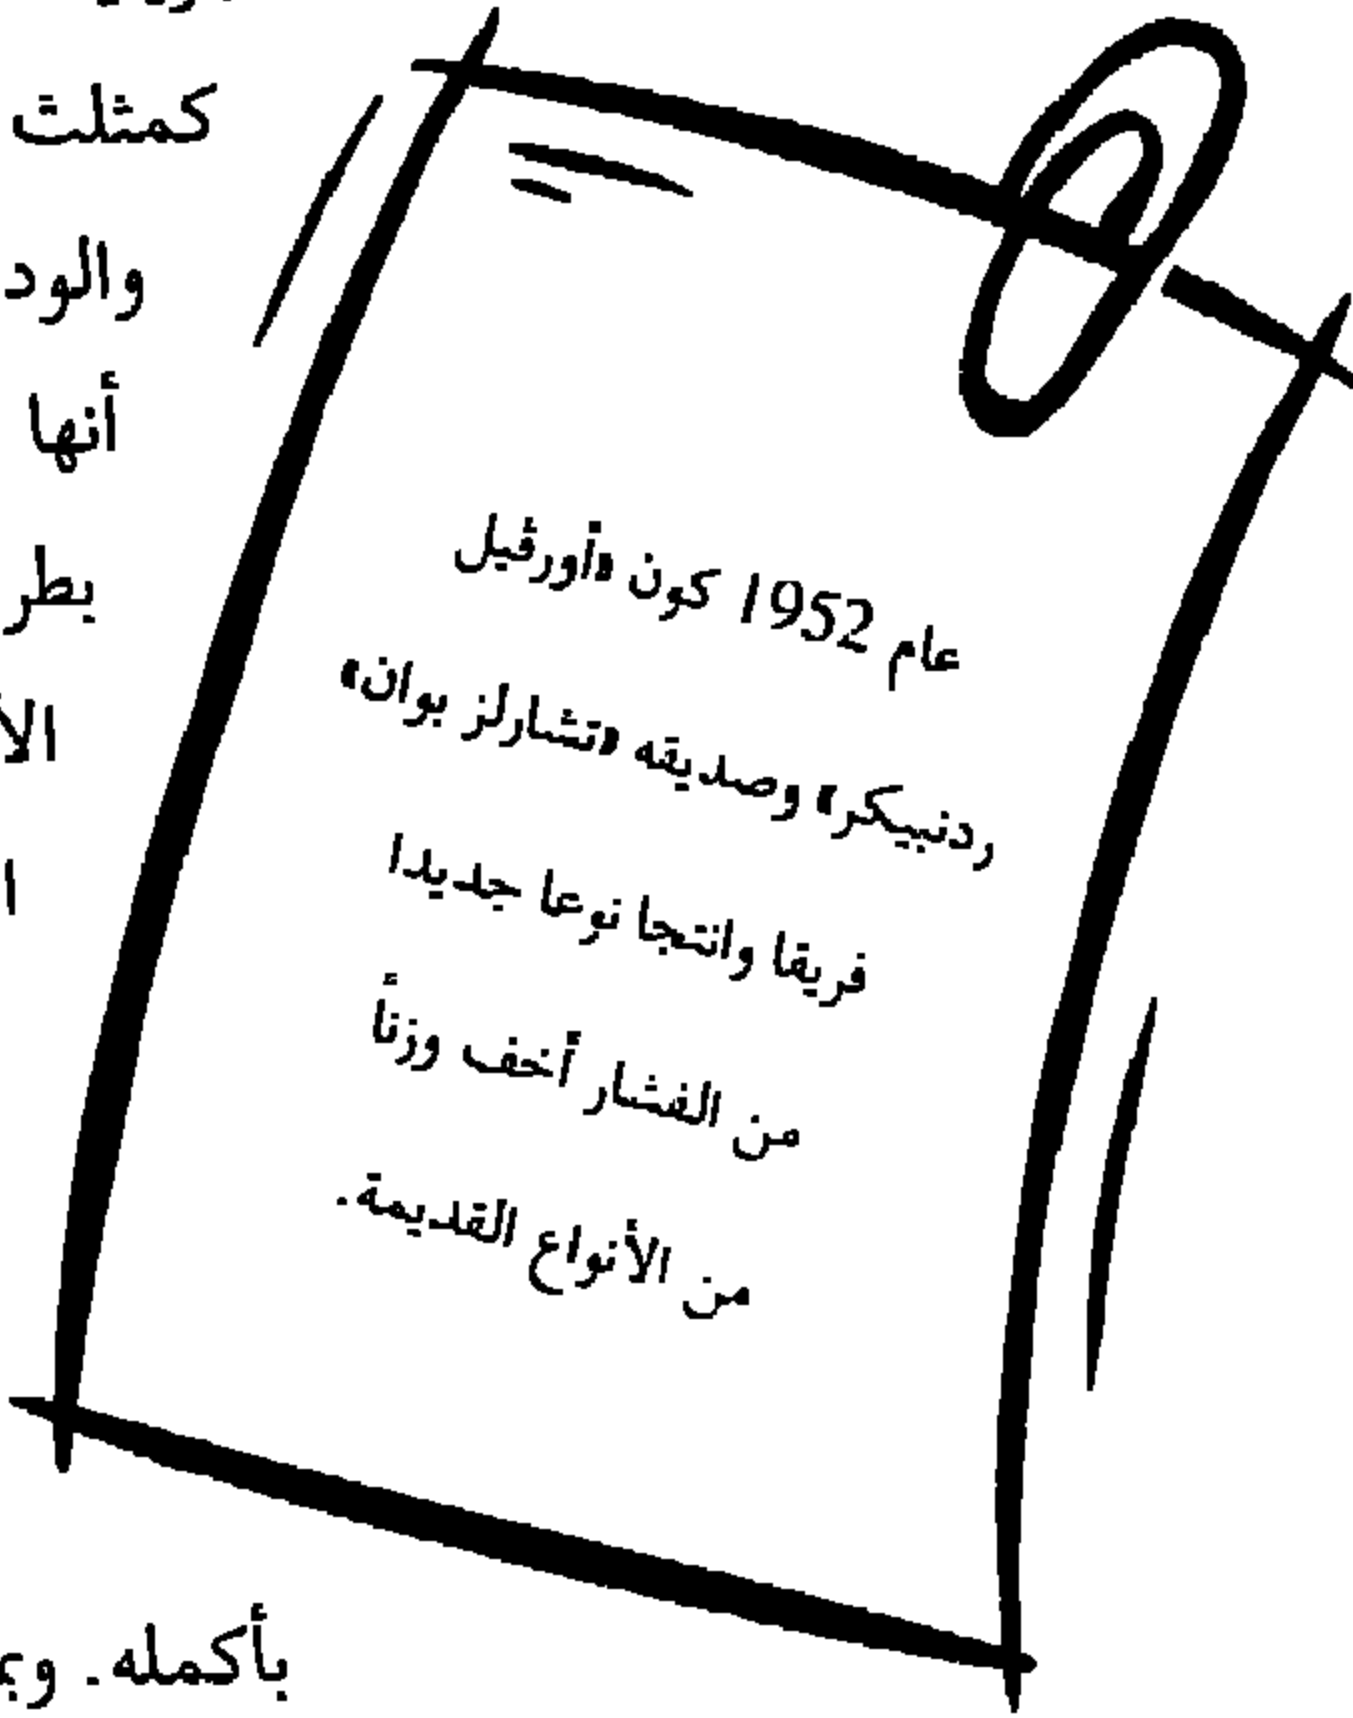 كمثلث
والود
أنها
بطر
عام 1952 كون «أورڤيل
ردنبيكر» وصديقه «تشارلز بوان»
فريقا وانتجا نوعا جديدا
من الفشار أخف وزنأ
من الأنواع القديمة.
بأكمله.